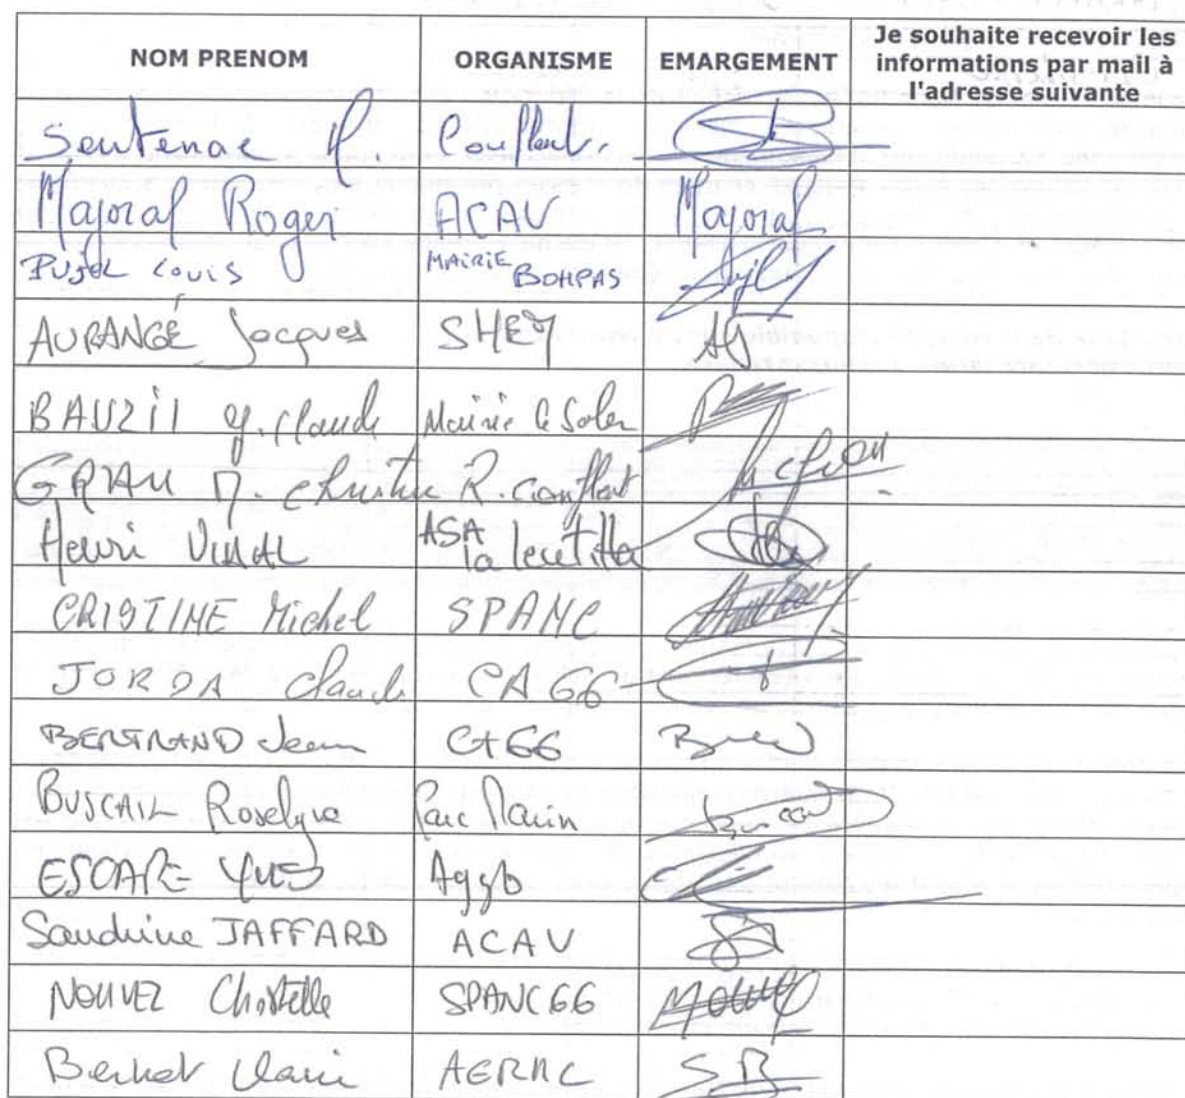 NOM PRENOM ORGANISME EMARGEMENT Je souhaite recevoir les
informations par mail à
l'adresse suivante
Sentenac H. Conflent.
Majoral Roger ACAV Majoral
PUJOL LOUIS MAIRIE BOMPAS
AURANGÉ Jacques AJ
BAUZIL J. Claude Mairie le Soler
GRAU M. Christine R. Conflent
Henri VIDAL ASA la
CRISTINE Michel SPANC
JORDA Claude CA 66
BERTRAND Jean CA 66
BUSCAIL Roselyne Parc Marin
ESCAPE YVES Agglo
Sandrine JAFFARD ACAV
NOUVEZ Christelle SPANC 66
AERMC S B